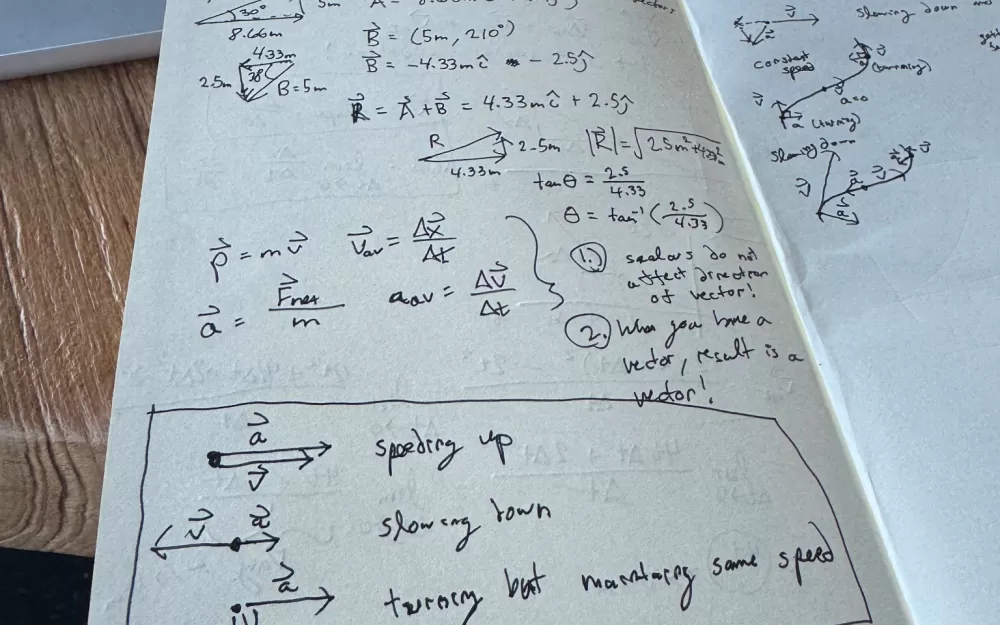 30°
5m
8.66m
B⃗ = (5m, 210°)
4.33m
2.5m
B = 5m
B⃗ = -4.33m î - 2.5ĵ
R⃗ = A⃗ + B⃗ = 4.33m î + 2.5ĵ
R
2.5m
4.33m
|R⃗| = √2.5m² + 4.33m²
tanθ = 2.5/4.33
θ = tan⁻¹(2.5/4.33)
p⃗ = mv⃗
v⃗av = Δx⃗/Δt
a⃗ = F⃗net/m
aav = Δv⃗/Δt
1.) scalars do not
affect direction
of vector!
2. When you have a
vector, result is a
vector!
a⃗
v⃗
speeding up
v⃗ a⃗
slowing down
a⃗
turning but maintaining same speed
v⃗
slowing down
constant
speed
v⃗
(turning)
a=0
v⃗
a⃗ (turning)
slowing down
v⃗
a⃗
v⃗
v⃗
a⃗